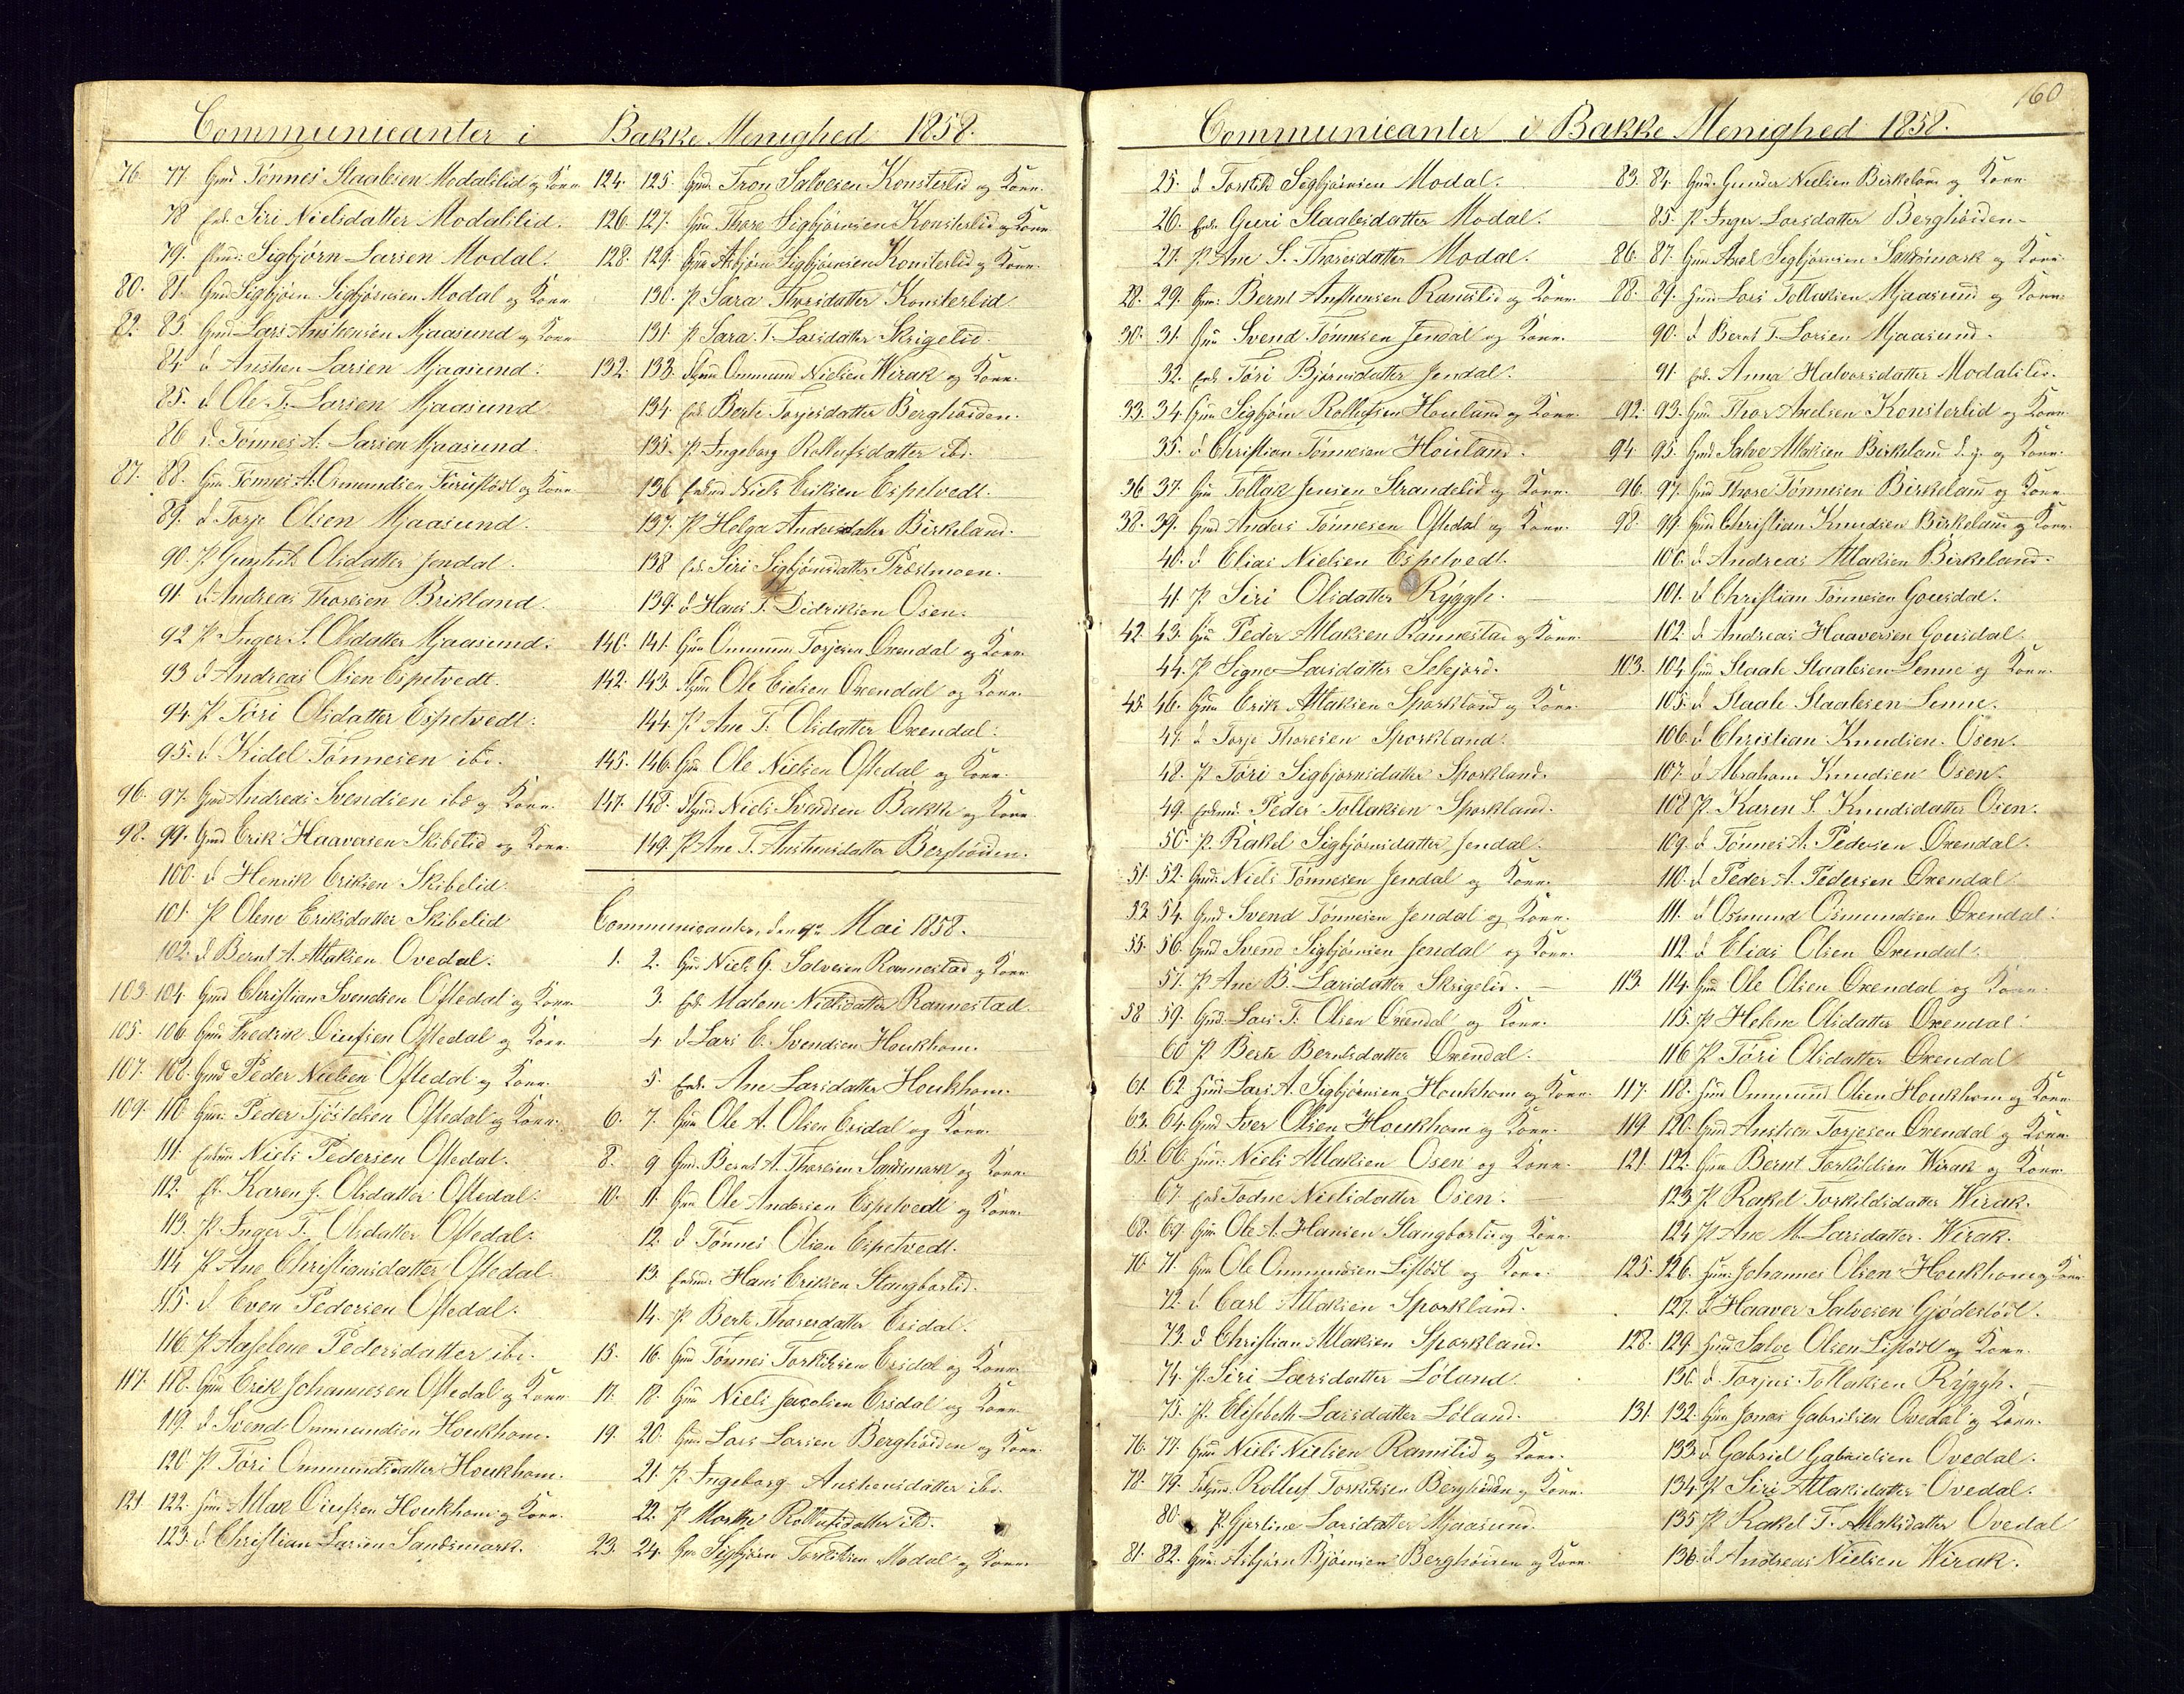 Communicanter i Bakke Menighed 1858.
76. 77. Gmd Tønnes Staalesen Modalslid og Kone
78 Enk. Siri Nielsdatter Modalslid.
79. Sigbjørn Larsen Modal.
80. 81. Gmd Sigbjørn Sigbjørnsen Modal og Kone
82. 83. Gmd Lars Anstensen Mjaasund og Kone
84. d Ansten Larsen Mjaasund.
85. d Ole T. Larsen Mjaasund
86 d. Tønnes A. Larsen Mjaasund.
87. 88. Gm Tønnes A. Osmundsen og Kone
89. d Torje Olsen Mjaasund.
90. P Olsdatter Jendal.
91. d. Andreas Thoresen Brikland.
92 P Inger S. Olsdatter Mjaasund.
93 d Andreas Olsen Espetvedt.
94. P Tøri Olsdatter Espetvedt.
95. d. Kidel Tønnesen ibd.
96. 97. Gmd Andreas Svendsen ibd og Kone.
98. 99. Gmd Erik Haaversen Skibelid og Kone.
100. d Henrik Eriksen Skibelid
101. P Olene Eriksdatter Skibelid
102. d Bernt A. Atlaksen Ovedal.
103. 104. Gmd Christian Svendsen Oftedal og Kone
105. 106. Gm Fredrik Oiufsen Oftedal og Kone
107. 108. Gmd Peder Nielsen Oftedal og Kone.
109. 110. Gm. Peder Tjøstelsen Oftedal og Kone.
111. Enkm Niels Pedersen Oftedal.
112. Ek. Karen J. Olsdatter Oftedal.
113. P. Inger T. Olsdatter Oftedal.
114. P Ane Christiansdatter Oftedal.
115. d. Even Pedersen Oftedal.
116. P Aaselene Pedersdatter ibd.
117. 118. Gm Erik Johannesen Oftedal og Kone
119. d Svend Ommundsen Houkhom.
120. P Tøri Ommundsdatter Houkhom.
121. 122. Gm Atlak Oiufsen Houkhom og Kone.
123. d Christian Larsen Sandsmark.
124. 125. Gm. Tron Salvesen Konsterlid og Kone.
126. 127. Gm Thore Sigbjørnsen Konsterlid og Kone
128. 129. Gm Asbjørn Sigbjørnsen Konsterlid og Kone.
130. P Sara Thorsdatter Konsterlid
131. P Sara T. Larsdatter Skrigelid.
132. 133. Ommund Nielsen Wirak og Kone.
134. Enk. Berte Torjesdatter Berghøiden.
135. P Ingeborg Rollufsdatter ibd.
136 Enkm Niels Eriksen Espetvedt.
137. P Helga Andersdatter Birkeland.
138 Enk. Siri Sigbjørnsdatter Præstmoen.
139. d Hans T. Didriksen Osen.
140. 141. Gm Ommund Torjesen Oxendal og Kone.
142. 143. Ole Eielsen Oxendal og Kone.
144. P Ane T. Olsdatter Oxendal.
145. 146. Gm Ole Nielsen Oftedal og Kone.
147. 148. Niels Svendsen Bakke og Kone
149. P Ane T. Anstensdatter Berghøiden.
Communicanter, den 9de Mai 1858.
1. 2. Gm Niels G. Salvesen Rannestad og Kone
3. Enk. Malene Nielsdatter Rannestad.
4. d Lars E. Svendsen Houkhom.
5. Enk. Ane Larsdatter Houkhom.
6. 7. Gm Ole A. Olsen Eesdal og Kone.
8. 9 Gmd. Bernt A. Thoresen Sandsmark og Kone.
10. 11. Gm Ole Andersen Espetvedt og Kone.
12. d Tønnes Olsen Espetvedt.
13. Enkm. Hans Eriksen Stangborlid.
14. P Berte Thoresdatter Eesdal.
15. 16. Gm Tønnes Torkildsen Eesdal og Kone.
17. 18. Gm Niels Jacobsen Eesdal og Kone.
19. 20. Gm Lars Larsen Berghøiden og Kone.
21. P Ingeborg Anstensdatter ibd.
22. P Marthe Rollufsdatter ibd.
23. 24. Gm Sigbjørn Torkildsen Modal og Kone.
160
Communicanter i Bakke Menighed 1858.
25. d Torkild Sigbjørnsen Modal.
26. Enk. Guri Staalesdatter Modal.
27. P Ane S. Thoresdatter Modal.
28. 29. Gm. Bernt Anstensen Ramslid og Kone.
30. 31. Gm Svend Tønnesen Jendal og Kone.
32. Enk Tøri Bjørnsdatter Jendal.
33. 34. Gm Sigbjørn Rollufsen Houland og Kone.
35. d Christian Tønnesen Houland.
36. 37. Gm Tollak Jensen Strandelid og Kone.
38. 39. Gmd Anders Tønnesen Oftedal og Kone.
40. d Elias Nielsen Espetvedt.
41. P. Siri Olsdatter Rygge.
42. 43. Gm Peder Atlaksen Rannestad og Kone.
44. P Signe Larsdatter Selejord.
45. 46. Gm Erik Atlaksen Sporkland og Kone.
47. d Torje Thoresen Sporkland.
48. P Tøri Sigbjørnsdatter Sporkland.
49. Enkmd. Peder Tollaksen Sporkland.
50. P. Rakel Sigbjørnsdatter Jendal.
51. 52. Gmd. Niels Tønnesen Jendal og Kone.
53. 54. Gmd Svend Tønnesen Jendal og Kone.
55. 56. Gmd Svend Sigbjørnsen Jendal og Kone.
57. P Ane B. Larsdatter Skrigelid.
58 59. Gmd. Lars T. Olsen Oxendal og Kone.
60 P Berte Berntsdatter Oxendal.
61. 62. Gmd Lars A. Sigbjørnsen Houkhom og Kone.
63. 64. Gmd Iver Olsen Houkhom og Kone.
65. 66. Gm. Niels Atlaksen Osen og Kone.
67. Enk Todne Nielsdatter Osen.
68. 69. Gm Ole A. Hansen Stangborlid og Kone.
70. 71. Gm Ole Ommundsen Listøl og Kone.
72. d. Carl Atlaksen Sporkland.
73. d Christian Atlaksen Sporkland.
74. P. Siri Larsdatter Løland.
75. P. Elisebeth Larsdatter Løland.
76. 77. Gm Niels Nielsen Ramslid og Kone.
78. 79. Rolluf Torkildsen Berghøiden og Kone.
80. P. Gjerline Larsdatter Mjaasund.
81. 82. Gm. Asbjørn Bjørnsen Berghøiden og Kone.
83. 84. Gmd. Gunder Nielsen Birkeland og Kone.
85. P Inger Larsdatter Berghøiden.
86. 87. Gm Axel Sigbjørnsen Sandsmark og Kone.
88. 89. Gm. Lars Tollaksen Mjaasund og Kone.
90. d Bernt T. Larsen Mjaasund.
91. Enk. Anna Halvorsdatter Modalslid.
92. 93. Gm Thor Axelsen Konsterlid og Kone.
94. 95. Gmd Salve Atlaksen Birkeland d. y. og Kone.
96. 97. Gmd Thore Tønnesen Birkeland og Kone.
98. 99. Gm Christian Knudsen Birkeland og Kone.
100. d Andreas Atlaksen Birkeland.
101. d Christian Tønnesen Gousdal.
102. d. Andreas Haaversen Gousdal.
103. 104. Gmd Staale Staalesen Senne og Kone.
105. d Staale Staalesen Senne.
106. d Christian Knudsen Osen.
107. d Abraham Knudsen Osen.
108 P. Karen S. Knudsdatter Osen.
109. d Tønnes A. Pedersen Oxendal.
110. d Peder A. Pedersen Oxendal
111. d Osmund Osmundsen Oxendal.
112. d Elias Olsen Oxendal.
113. 114. Gm Ole Olsen Oxendal og Kone.
115. P Helene Olsdatter Oxendal.
116 P Tøri Olsdatter Oxendal.
117. 118. Gm Ommund Olsen Houkhom og Kone.
119. 120. Gmd Ansten Torjesen Oxendal og Kone.
121. 122. Gm Bernt Torkildsen Wirak og Kone.
123 P Rakel Torkildsdatter Wirak.
124 P Ane M. Larsdatter Wirak.
125. 126. Gm. Johannes Olsen Houkhom og Kone.
127. d Haaver Salvesen Gjødestøl.
128. 129. Gmd Salve Olsen Listøl og Kone.
130. d Torjus Tollaksen Rygge.
131. 132. Gm Jonas Gabrielsen Ovedal og Kone.
133. d Gabriel Gabrielsen Ovedal.
134 P Siri Atlaksdatter Ovedal.
135 P Rakel T. Atlaksdatter Ovedal
136. d Andreas Nielsen Wirak.